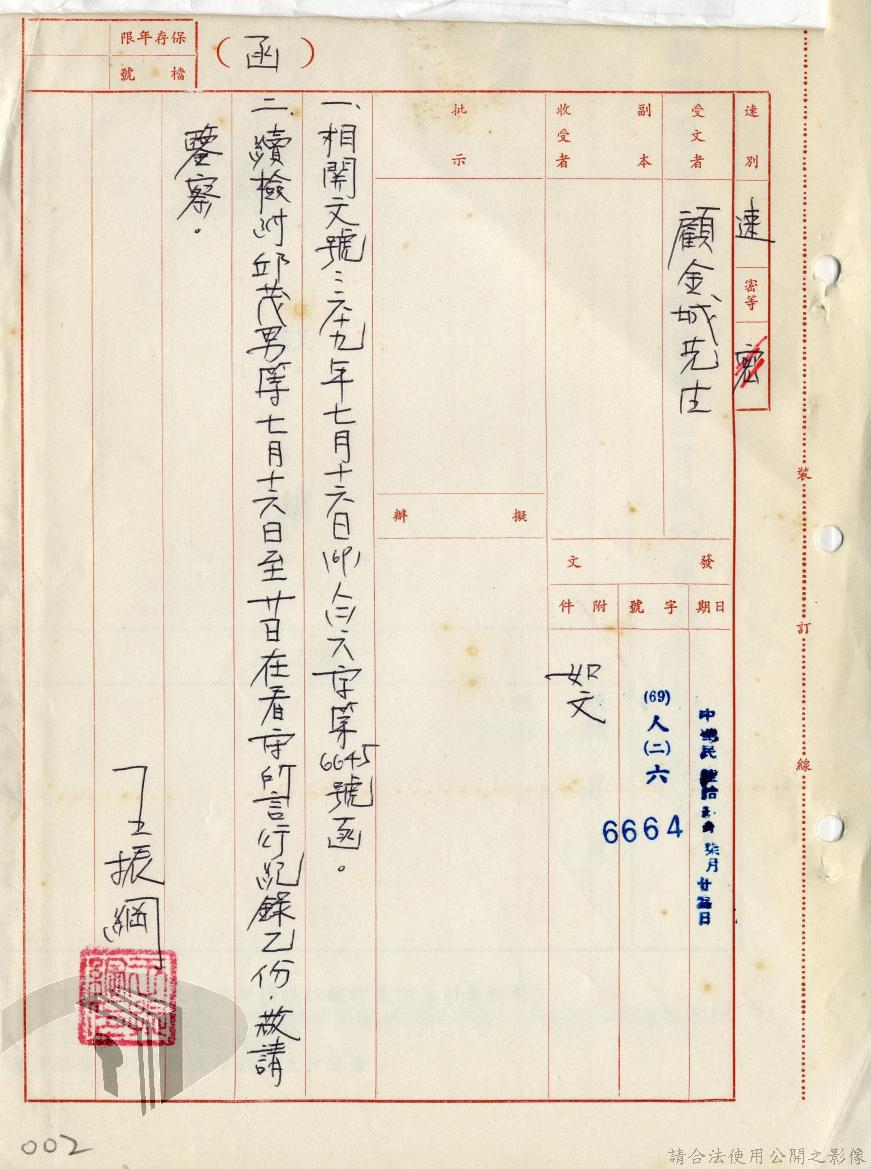 保存年限
檔號
（函）
速別
速
密等
密
受文者
顧金城先生
副本
收受者
批示
擬辦
發文
日期
字號
附件
中華民國
柒月
日
(69)
人
(二)
六
6664
如文
一、相關文號：六十九年七月十六日(69)人(二)六字第6645號函。
二、續檢附邱茂男等七月十六日至廿日在看守所言行紀錄乙份，敬請
鑒察。
王振綱
裝
訂
線
002
請合法使用公開之影像